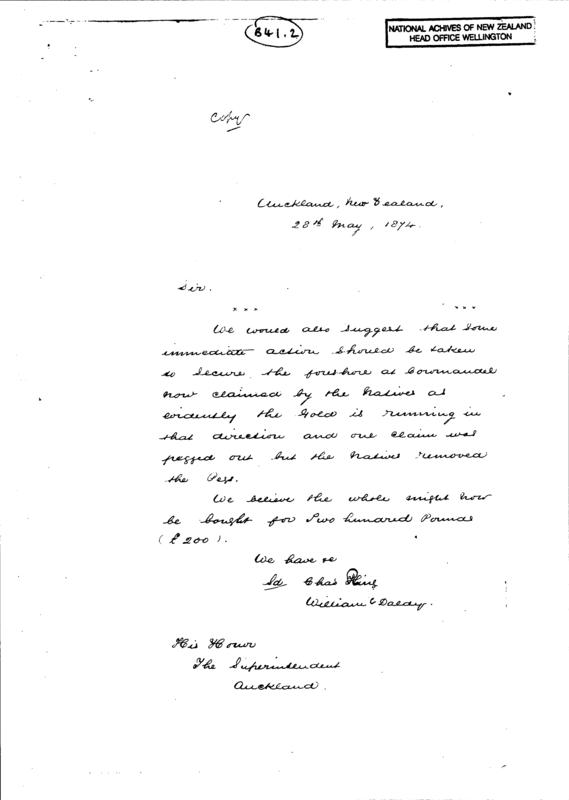 B41.2
NATIONAL ACHIVES OF NEW ZEALAND
HEAD OFFICE WELLINGTON
Copy
Auckland, New Zealand,
28th May, 1874.
Sir.
x x x x x x
We would also suggest that some
immediate action should be taken
to secure the foreshore at Coromandel
now claimed by the Natives as
evidently the Gold is running in
that direction and one claim was
pegged out but the Natives removed
the Pegs.
We believe the whole might now
be bought for Two hundred Pounds
(£200).
We have &c
Sd Chas Ring
William C Daldy.
His Honor
The Superintendent
Auckland.